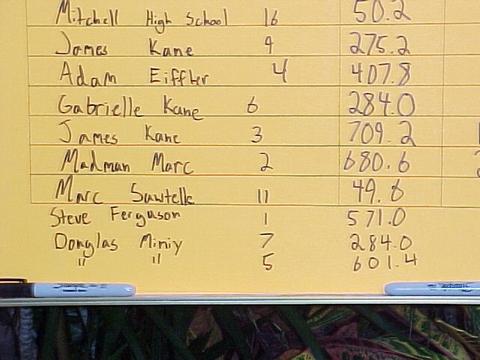 Mitchell High School 16 50.2
James Kane 9 275.2
Adam Eiffler 4 407.8
Gabrielle Kane 6 284.0
James Kane 3 709.2
Madman Marc 2 680.6
Marc Sawtelle 11 49.6
Steve Ferguson 1 571.0
Donglas Miniy 7 284.0
" " 5 601.4